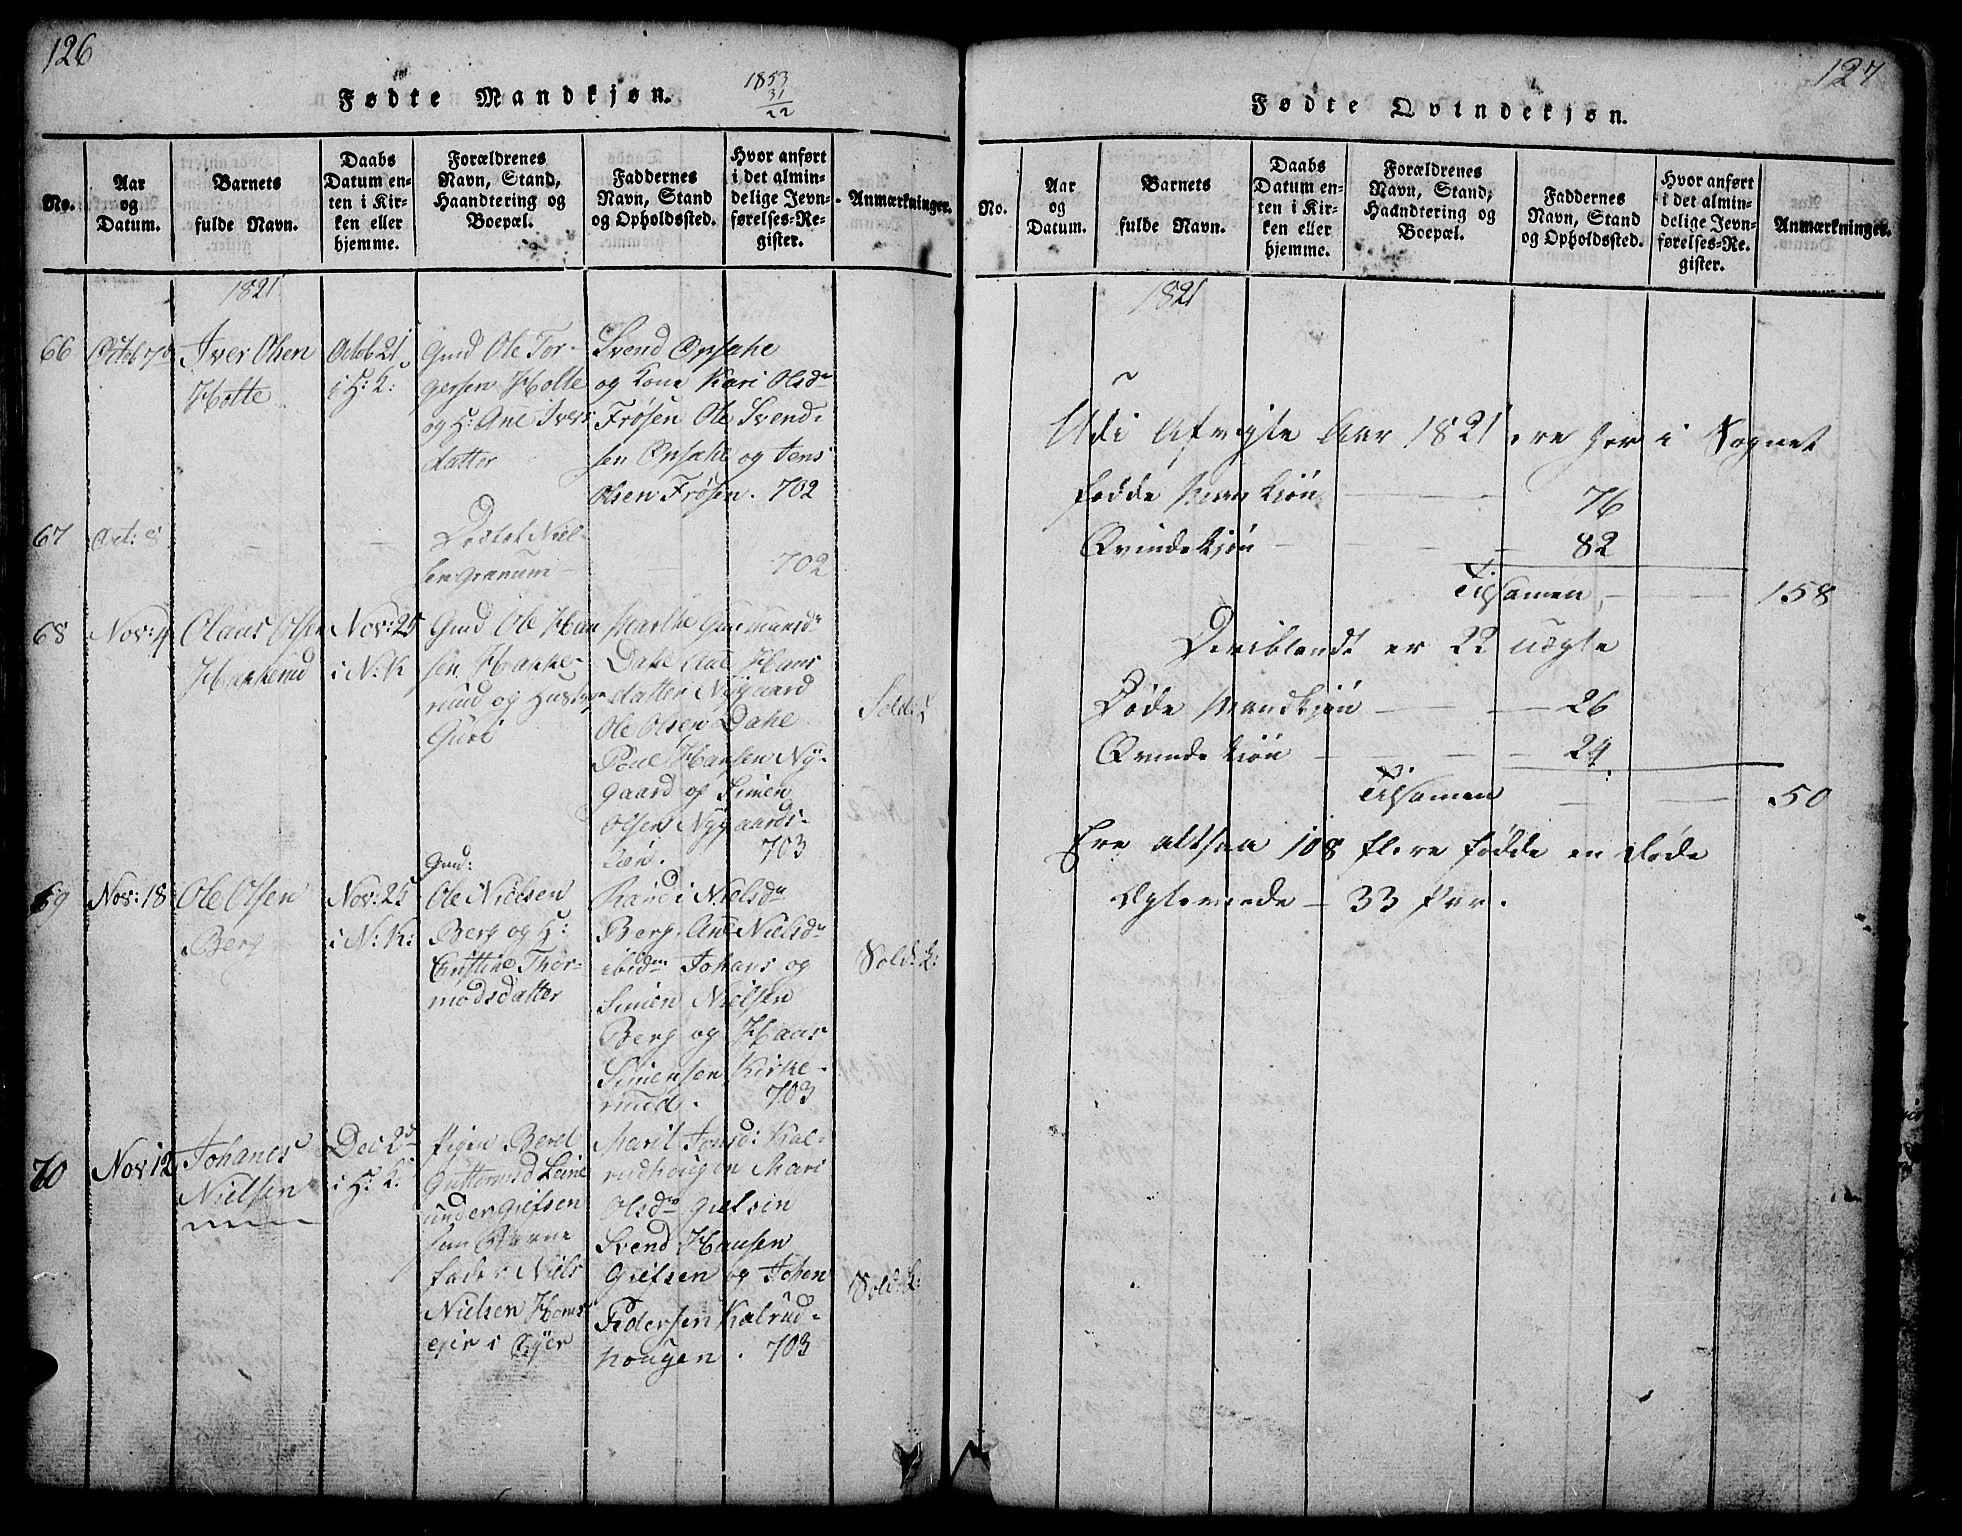 126
Fødte Mandkjøn.
1853
31
22
No.
Aar
og
Datum.
Barnets
fulde Navn.
Daabs
Datum en-
ten i Kir-
ken eller
hjemme.
Forældrenes
Navn, Stand,
Haandtering og
Boepæl.
Faddernes
Navn, Stand
og Opholdssted.
Hvor anført
i det almin-
delige Jevn-
førelses-Re-
gister.
Anmærkninger.
1821
66
Octob 7de
Iver Olsen
Holte
Octob 21
i H: K:
Gmd Ole Tor-
gersen Holte
og H: Ane Ivers
datter
Svend Opsahe
og Kone Kari Olsdr
Frøsen Ole Svend-
sen Opsahe og Jens
Olsen Frøsen. 702
67
Oct: 8
Niel-
sen Granum
702
68
Nov: 4
Olaus Olsen
Hankerud
Nov: 25
i N: K
Gmd Ole Han
sen Hanke-
rud og Hustrue
Guri
Marthe
Dahe Ane Hans
datter Nygaard
Ole Olsen Dahe
Poul Hansen Ny-
gaard og Simen
Olsen Nygaards-
703
69
Nov: 18
Ole Olsen
Berg
Nov: 25
i N: K:
Gmd:
Ole Nielsen
Berg og H:
Cristine Thor-
modsdatter
Randi Nielsdr
Berg. Ane Nielsdr
ibidm Johans og
Simen Nielsen
Berg og Haas
Simensen Kirke-
rud. 703
Sold: K:
70
Nov 12
Johanes
Nielsen
Dec 2d
i H: K:
Pigen Beret
under Gielsen
fader Niels
Nielsen
eier i Øyer
Marit Jonsd: Kal-
rudhougen Mari
Olsdr Gielsen
Svend Hansen
Gielsen og Johen
Pedersen Kalrud-
hougen. 703
Sold: K:
127
Fødte Qvindekjøn.
No.
Aar
og
Datum.
Barnets
fulde Navn.
Daabs
Datum en-
ten i Kir-
ken eller
hjemme.
Forældrenes
Navn, Stand,
Haandtering og
Boepæl.
Faddernes
Navn, Stand
og Opholdssted.
Hvor anført
i det almin-
delige Jevn-
førelses-Re-
gister.
Anmærkninger.
1821
Udi Afvigte Aar 1821 ere her i Sognet
fødde Mankjøn 76
Qvindekjøn 82
Tilsamen, 158
Deriblandt er 22 uægte
Døde Mandkjøn 26
Qvindekjøn 24
Tilsamen 50
Ere altsaa 108 flere fødde en døde
Ægteviede - 33 Par.